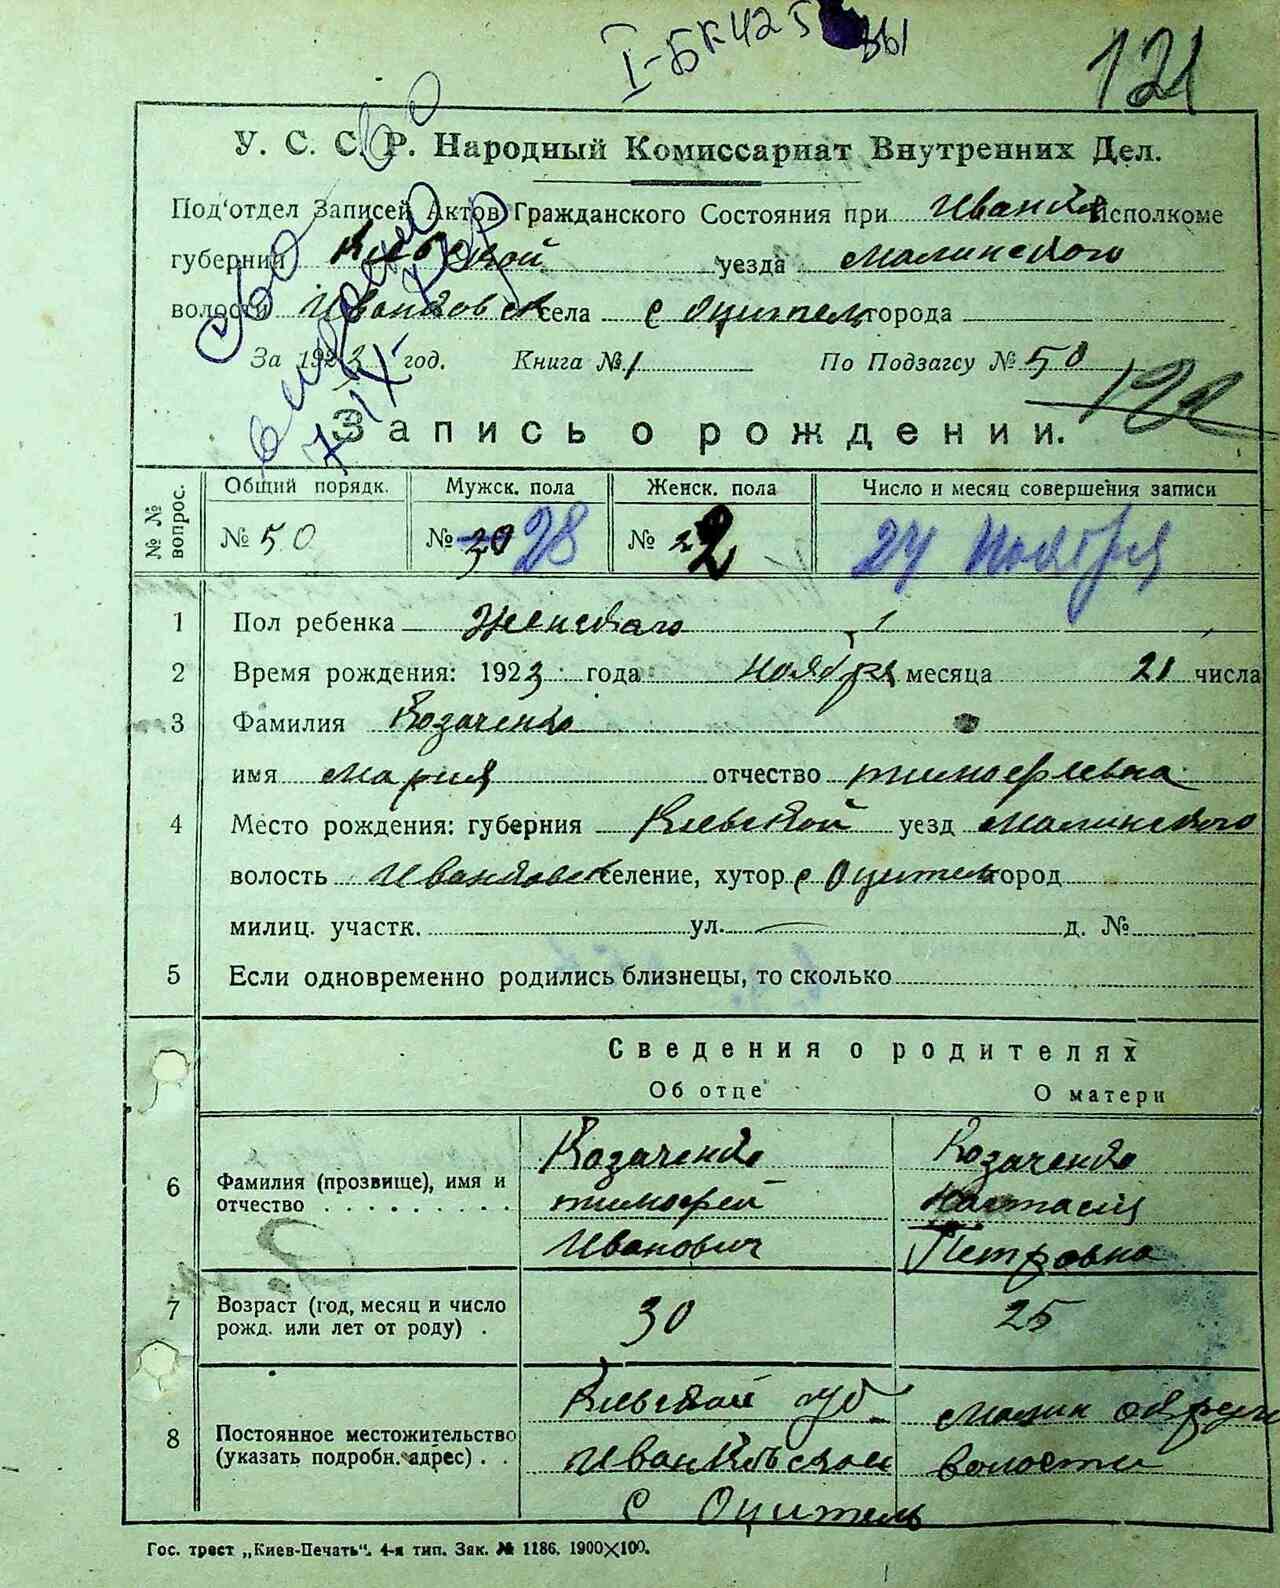 I-БК 425 вы
121
У. С. С. Р. Народный Комиссариат Внутренних Дел.
Под'отдел Записей Актов Гражданского Состояния при Иванк Исполкоме
губернии Киевской уезда Малинского
волости Иванковск села с Оцитель города
За 1923 год. Книга № 1 По Подзагсу № 50
122
Запись о рождении.
№ № вопрос. Общий порядк. Мужск. пола Женск. пола Число и месяц совершения записи
№ 50 № 30 28 № 22 24 Ноября
1 Пол ребенка Женскаго
2 Время рождения: 1923 года ноября месяца 21 числа
3 Фамилия Козаченко
имя Мария отчество тимофеевна
4 Место рождения: губерния Киевской уезд Малинского
волость Иванковск селение, хутор с Оцитель город
милиц. участк. ул. д. №
5 Если одновременно родились близнецы, то сколько
Сведения о родителях
Об отце О матери
6 Фамилия (прозвище), имя и отчество
Козаченко тимофей Иванович
Козаченко Настасия Петровна
7 Возраст (год, месяц и число рожд. или лет от роду) 30 25
8 Постоянное местожительство (указать подробн. адрес)
Киевской губ Малин округи
Иванкивской волости
с Оцитель
Гос. трест „Киев-Печать“. 4-я тип. Зак. № 1186. 1900×100.